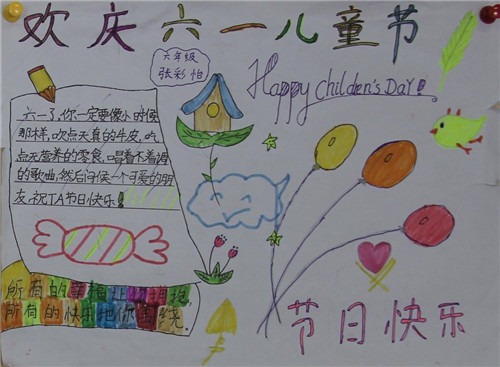 欢庆六一儿童节
六年级
张彩怡
Happy Children's Day!
六一了,你一定要像小时候
那样,吹点天真的牛皮,吃
点无营养的零食,唱着不着调
的歌曲,然后问候一个可爱的朋
友,祝TA节日快乐!
所有的幸福让你拥抱,
所有的快乐把你围绕.
节日快乐